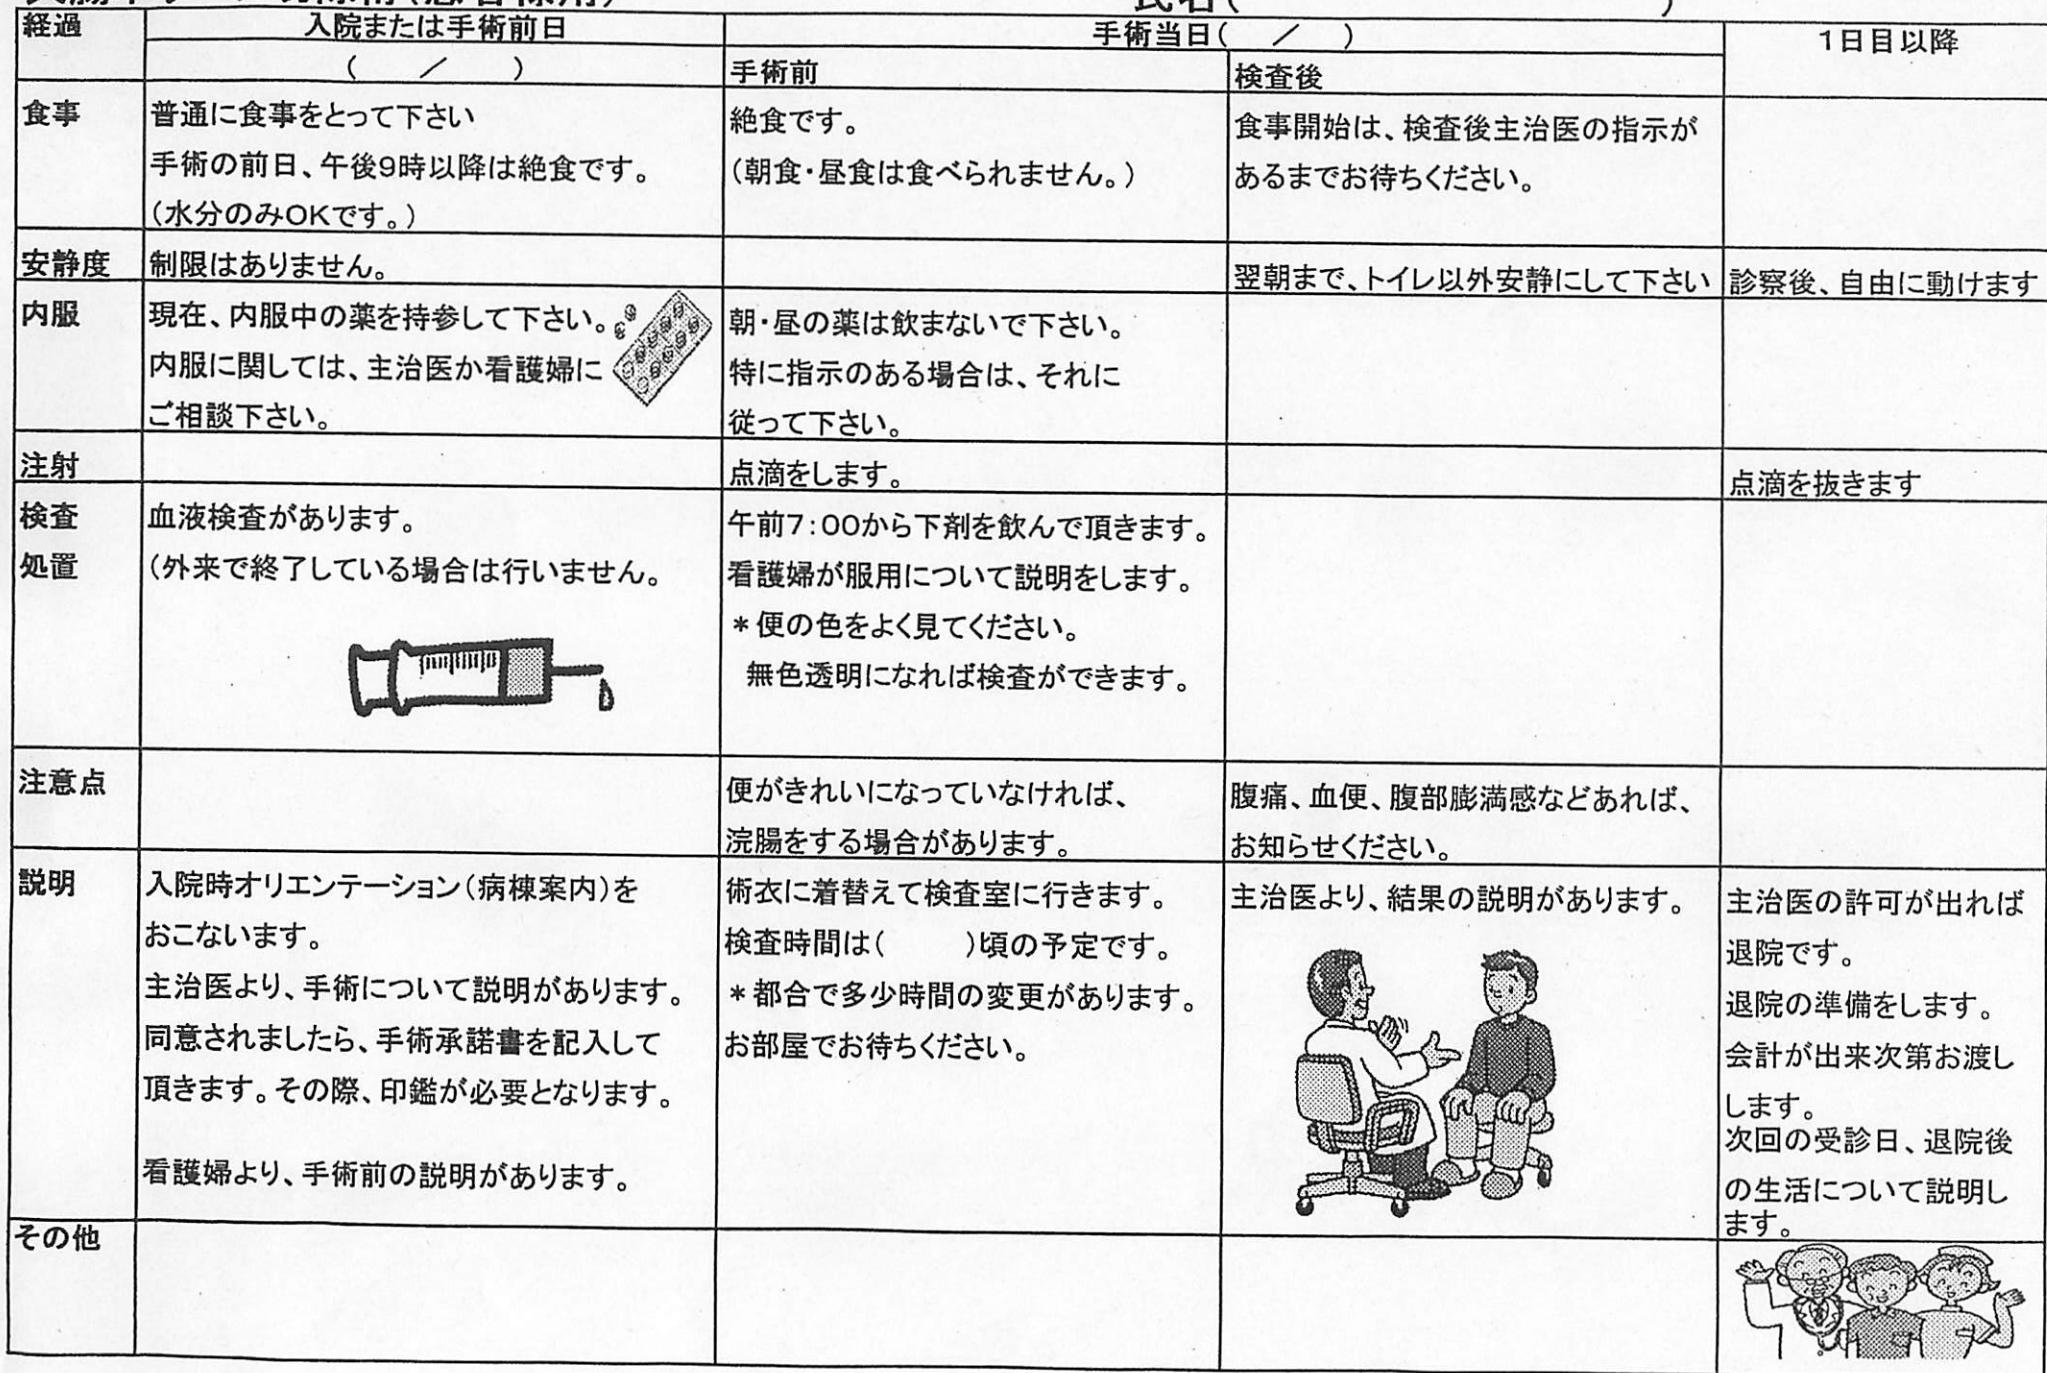 氏名(　　　)
経過
入院または手術前日
手術当日(　／　)
1日目以降
(　／　)
手術前
検査後
食事
普通に食事をとって下さい
手術の前日、午後9時以降は絶食です。
(水分のみOKです。)
絶食です。
(朝食・昼食は食べられません。)
食事開始は、検査後主治医の指示が
あるまでお待ちください。
安静度
制限はありません。
翌朝まで、トイレ以外安静にして下さい
診察後、自由に動けます
内服
現在、内服中の薬を持参して下さい。
内服に関しては、主治医か看護婦に
ご相談下さい。
朝・昼の薬は飲まないで下さい。
特に指示のある場合は、それに
従って下さい。
注射
点滴をします。
点滴を抜きます
検査
処置
血液検査があります。
(外来で終了している場合は行いません。
午前7:00から下剤を飲んで頂きます。
看護婦が服用について説明をします。
＊便の色をよく見てください。
無色透明になれば検査ができます。
注意点
便がきれいになっていなければ、
浣腸をする場合があります。
腹痛、血便、腹部膨満感などあれば、
お知らせください。
説明
入院時オリエンテーション(病棟案内)を
おこないます。
主治医より、手術について説明があります。
同意されましたら、手術承諾書を記入して
頂きます。その際、印鑑が必要となります。
看護婦より、手術前の説明があります。
術衣に着替えて検査室に行きます。
検査時間は(　　　)頃の予定です。
＊都合で多少時間の変更があります。
お部屋でお待ちください。
主治医より、結果の説明があります。
主治医の許可が出れば
退院です。
退院の準備をします。
会計が出来次第お渡し
します。
次回の受診日、退院後
の生活について説明し
ます。
その他